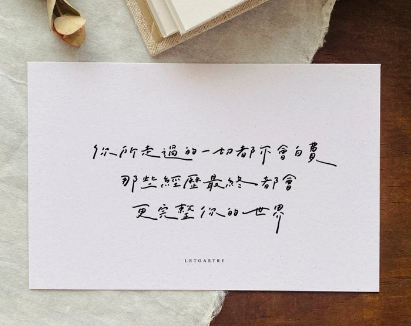 你所走過的一切都不會白費
那些經歷最終都會
更完整你的世界